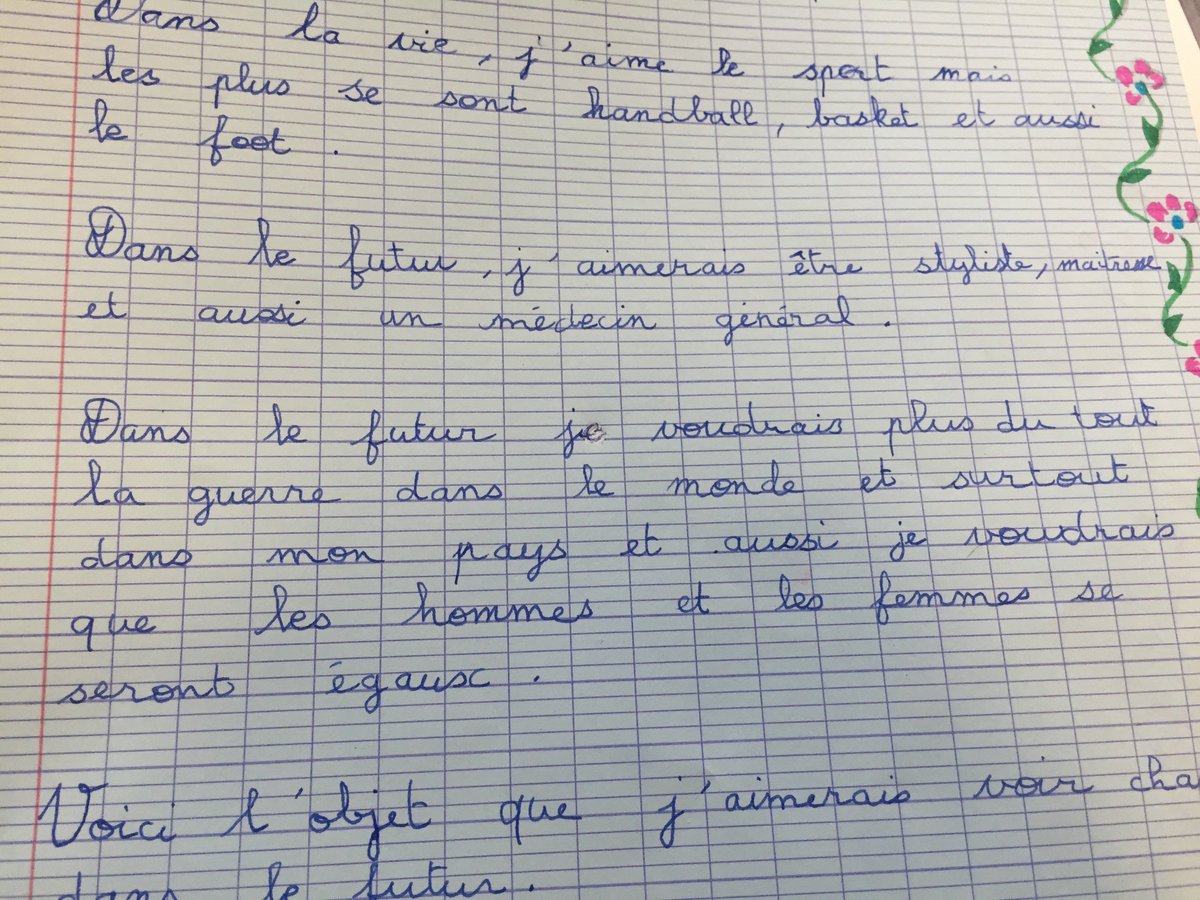 Dans la vie, j'aime le sport mais
les plus se sont handball, basket et aussi
le foot.
Dans le futur, j'aimerais être styliste, maitresse
et aussi un médecin général.
Dans le futur je voudrais plus du tout
la guerre dans le monde et surtout
dans mon pays et aussi je voudrais
que les hommes et les femmes se
seront égaux.
Voici l'objet que j'aimerais voir cha
dans le futur.